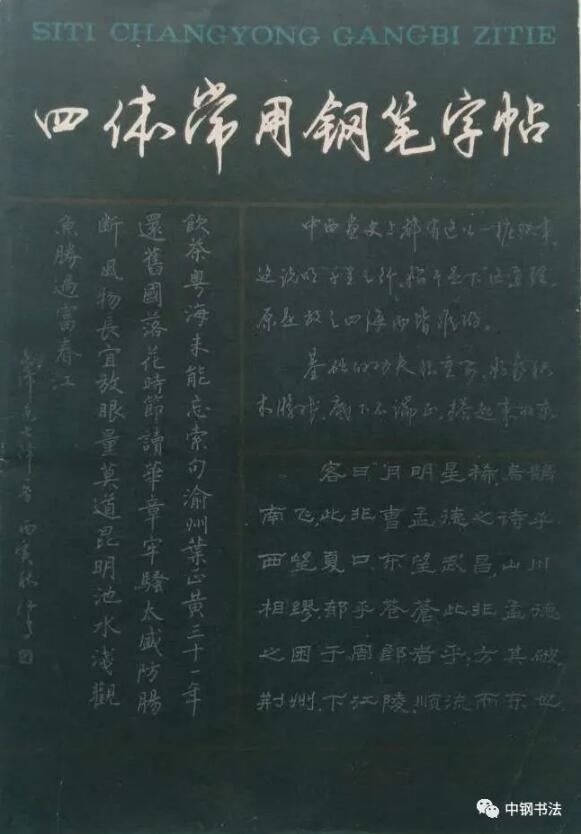 SITI CHANGYONG GANGBI ZITIE
四体常用钢笔字帖
飲茶粤海未能忘索句渝州葉正黄三十一年
還舊國落花時節讀華章牢騷太盛防腸
断風物長宜放眼量莫道昆明池水淺觀
魚勝過富春江
丙寅秋
中西画史上都有这么一桩故事,
这说明"千里之行,始于足下"这道理,
原是放之四海而皆准的。
基础的功夫很重要,积
木游戏,底下不端正,搭起来的东
客曰"月明星稀,乌鹊
南飞,此非曹孟德之诗乎,
西望夏口,东望武昌,山川
相缪,郁乎苍苍,此非孟德
之困于周郎者乎,方其破
荆州,下江陵,顺流而东也
中钢书法